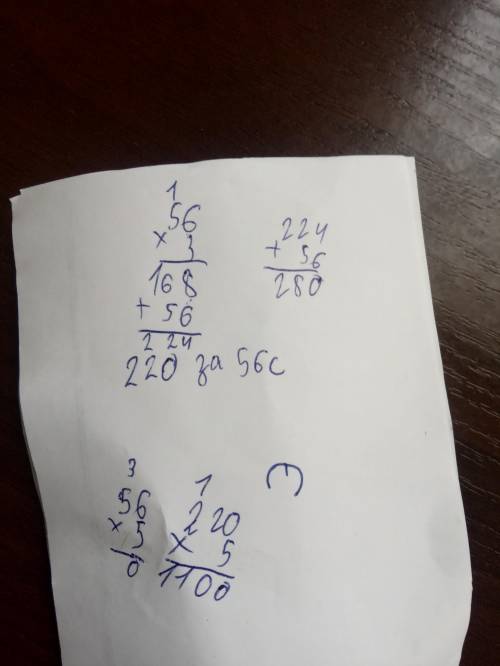 1
56
× 3
168
+ 56
224
220 за 56с
224
+ 56
280
3
56
× 5
0
1
220
× 5
1100